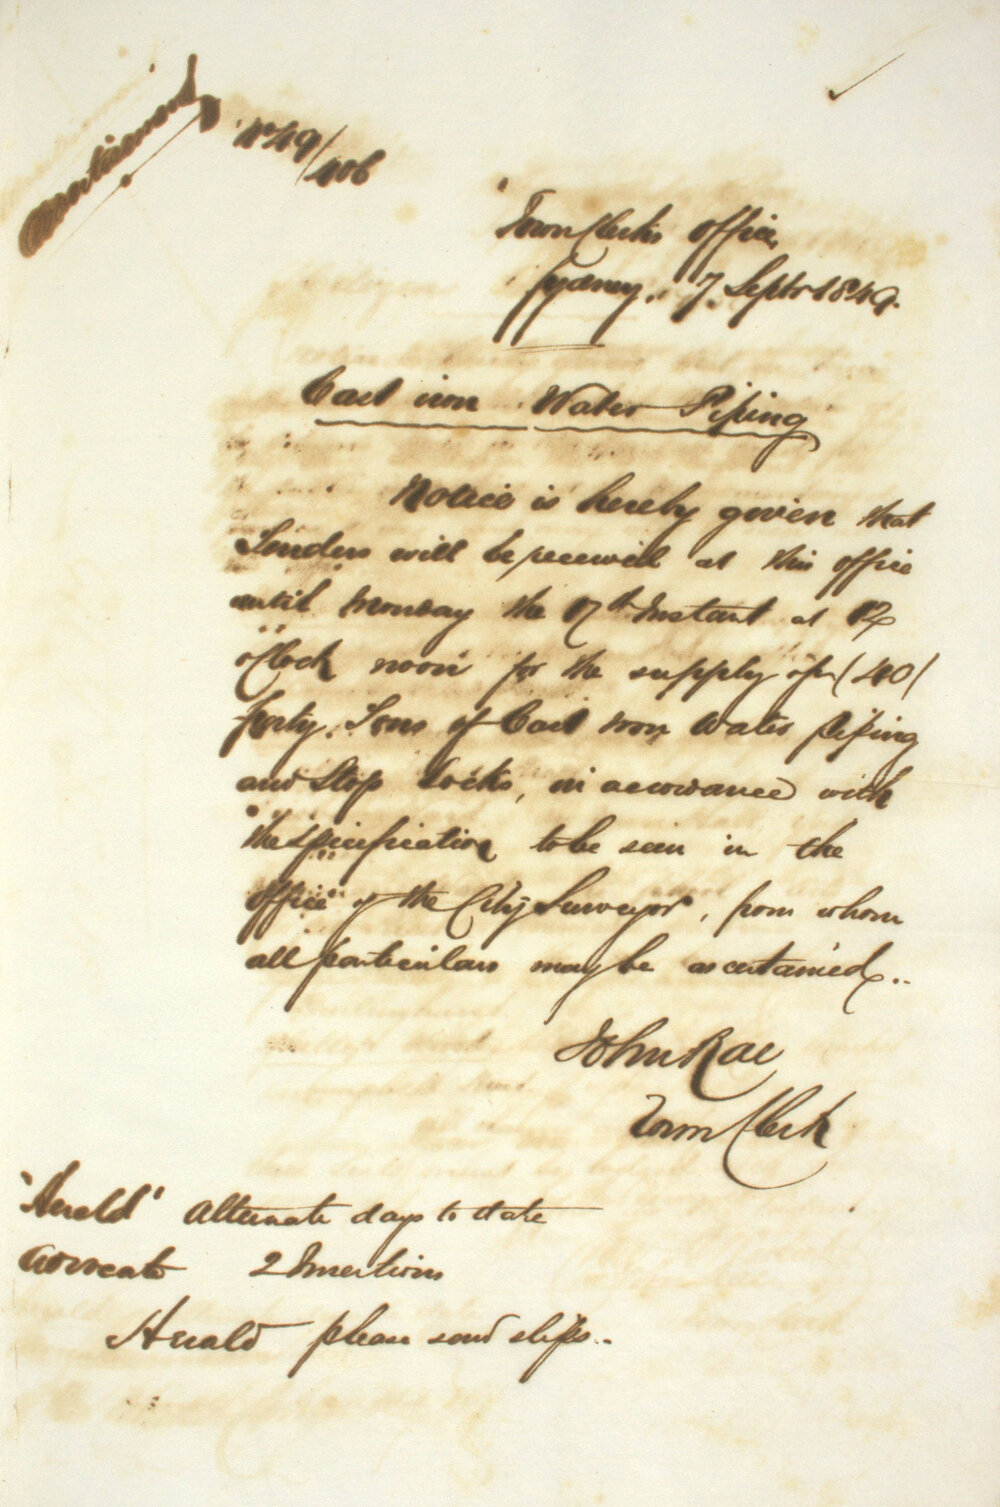 Advertisement
No 49/406
Town Clerk's office,
Sydney, 7 Septr 1849.
Cast iron Water Piping
Notice is hereby given that
Tenders will be received at this office
until Monday the 17th Instant at 12
o'Clock noon for the supply of (40)
forty Tons of Cast iron Water piping
and Stop Cocks, in accordance with
the specification to be seen in the
office of the City Surveyor, from whom
all particulars may be ascertained..
John Rae
Town Clerk
"Herald" alternate days to date
Advocate 2 Insertions
Herald please send slips..